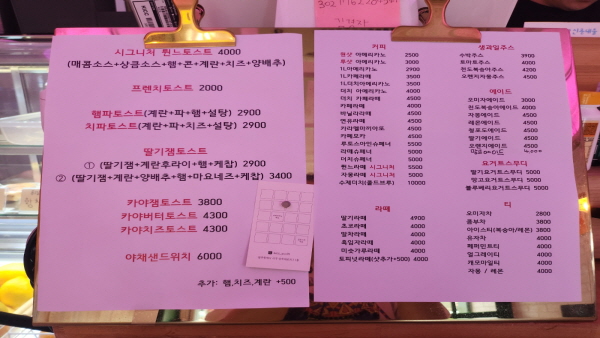 시그니처 튄느토스트 4000
(매콤소스+상큼소스+햄+콘+계란+치즈+양배추)
프렌치토스트 2000
햄파토스트(계란+파+햄+설탕) 2900
치파토스트(계란+파+치즈+설탕) 2900
딸기잼토스트
① (딸기잼+계란후라이+햄+케찹) 2900
② (딸기잼+계란+양배추+햄+마요네즈+케찹) 3400
카야잼토스트 3800
카야버터토스트 4300
카야치즈토스트 4300
야채샌드위치 6000
추가: 햄,치즈,계란 +500
커피
원샷 아메리카노 2500
투샷 아메리카노 3000
1L아메리카노 2900
1L카페라떼 3500
1L더치아메리카노 3500
더치 아메리카노 4000
더치 카페라떼 4500
카페라떼 4000
바닐라라떼 4500
연유라떼 4500
카라멜마끼아또 4500
카페모카 4500
루트스아인슈페너 5500
라떼슈페너 5000
더치슈페너 5000
튄느라떼 시그니처 5000
자몽라떼 시그니처 5000
수제더치(콜드브루) 10000
라떼
딸기라떼 4900
초코라떼 4000
말차라떼 4000
흑임자라떼 4000
미숫가루라떼 4000
토피넛라떼(샷추가+500) 4000
생과일주스
수박주스 3900
토마토주스 4000
천도복숭아주스 4200
오렌지자몽주스 4500
에이드
오미자에이드 3000
천도복숭아에이드 4000
자몽에이드 4000
레몬에이드 4000
청포도에이드 4000
딸기에이드 4000
오렌지에이드 4000
요거트스무디
딸기요거트스무디 5000
망고요거트스무디 5000
블루베리요거트스무디 5000
티
오미자차 2800
콤부차 3800
아이스티(복숭아/레몬) 3800
유자차 4000
페퍼민트티 4000
얼그레이티 4000
캐모마일티 4000
자몽 / 레몬 4000